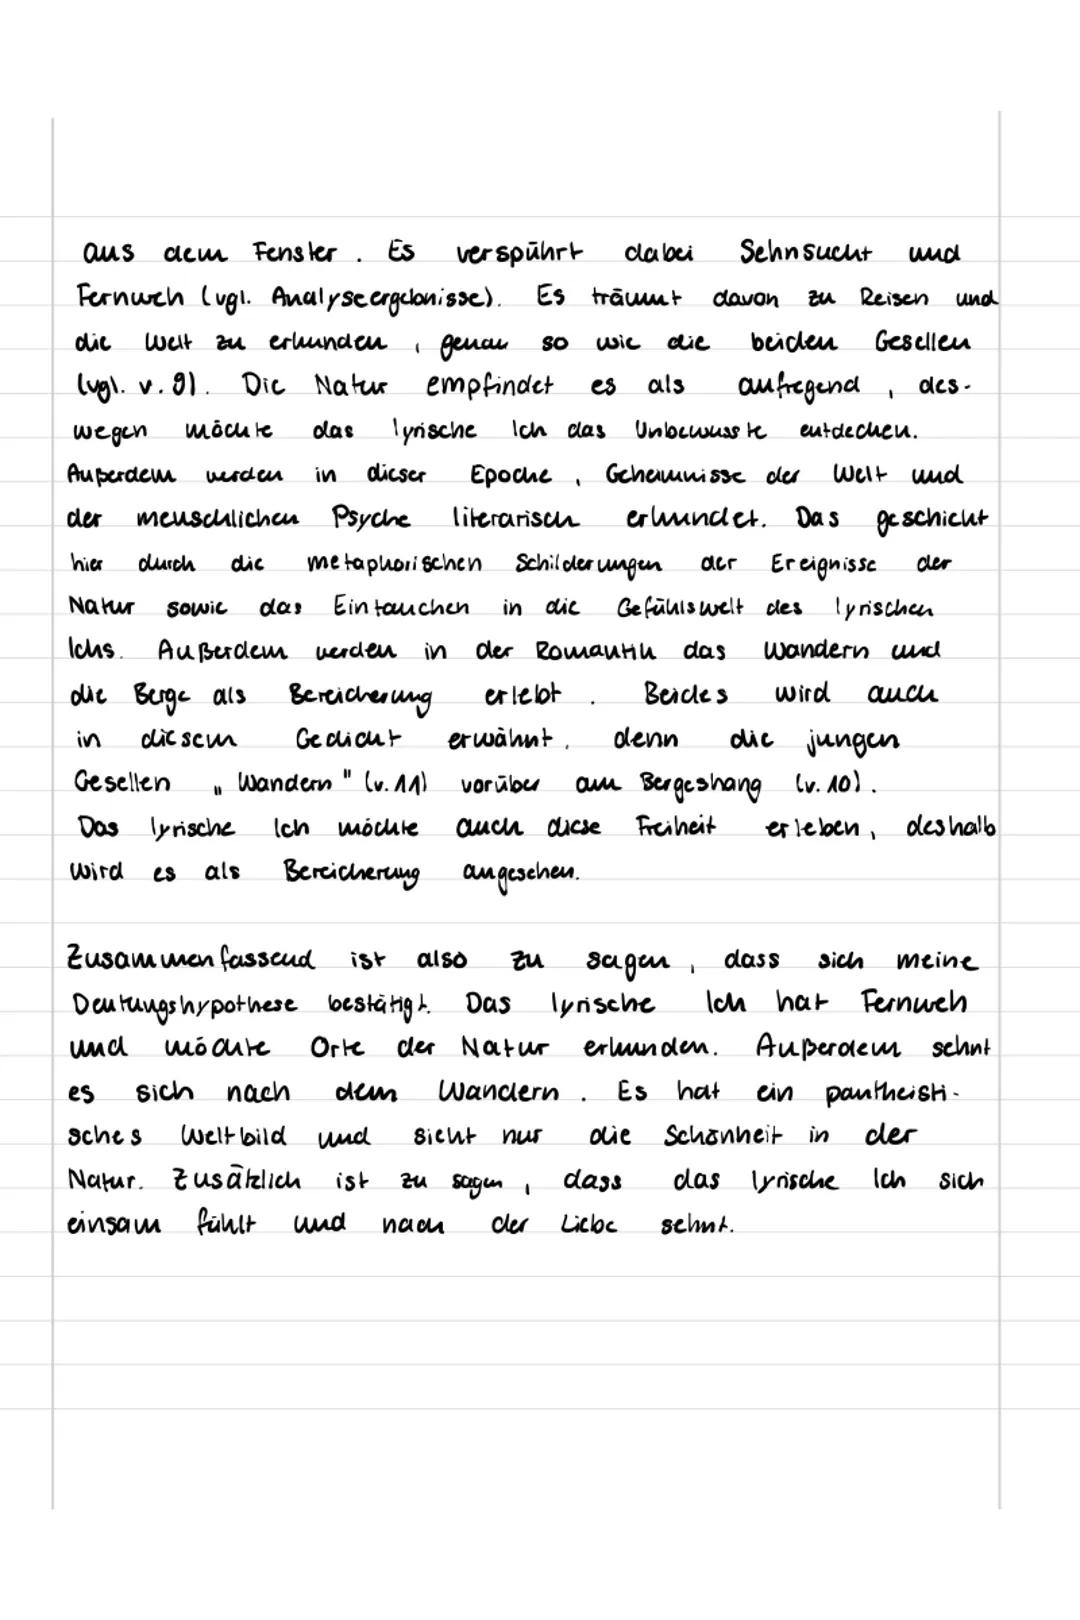 aus dem Fenster. Es verspührt dabei Sehnsucht und
Fernweh (vgl. Analyseergebnisse). Es träumt davon zu Reisen und
die Welt zu erkunden, genau so wie die beiden Gesellen
(vgl. v. 9). Die Natur empfindet es als aufregend, des-
wegen möchte das lyrische Ich das Unbewusste entdecken.
Außerdem werden in dieser Epoche, Geheimnisse der Welt und
der menschlichen Psyche literarisch erkundet. Das geschieht
hier durch die metaphorischen Schilderungen der Ereignisse der
Natur sowie das Eintauchen in die Gefühlswelt des lyrischen
Ichs. Außerdem werden in der Romantik das Wandern und
die Berge als Bereicherung erlebt. Beides wird auch
in diesem Gedicht erwähnt, denn die jungen
Gesellen „Wandern" (v. 11) vorüber am Bergeshang (v. 10).
Das lyrische Ich möchte auch diese Freiheit erleben, deshalb
wird es als Bereicherung angesehen.
Zusammenfassend ist also zu sagen, dass sich meine
Deutungshypothese bestätigt. Das lyrische Ich hat Fernweh
und möchte Orte der Natur erkunden. Außerdem sehnt
es sich nach dem Wandern. Es hat ein pantheisti-
sches Weltbild und sieht nur die Schönheit in der
Natur. Zusätzlich ist zu sagen, dass das lyrische Ich sich
einsam fühlt und nach der Liebe sehnt.